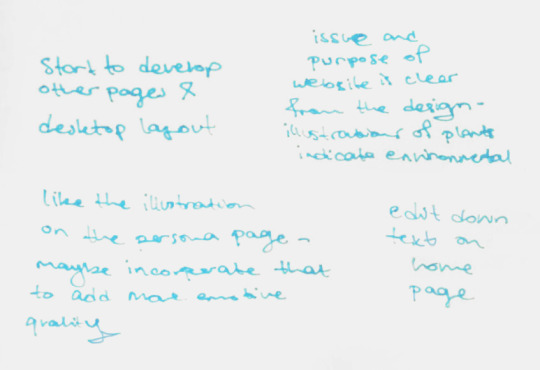 Start to develop
other pages &
desktop layout
issue and
purpose of
website is clear
from the design -
illustrations of plants
indicate environmental
like the illustration
on the persona page -
maybe incorporate that
to add more emotive
quality
edit down
text on
home
page